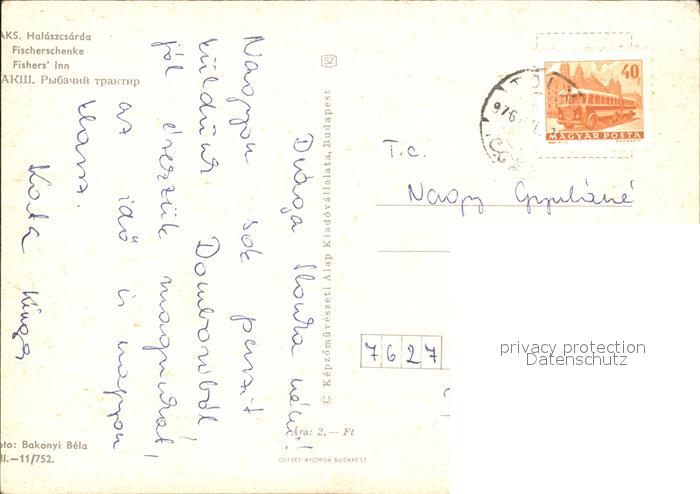 AKS. Halászcsárda
Fischerschenke
Fishers' Inn
АКШ. Рыбачий трактир
Drága Ilonka néni!
Nagyon sok puszit
küldünk Domboriból
jól érezzük magunkat!
az idő is nagyon
klassz.
Kata Kinga
SZ
© Képzőművészeti Alap Kiadóvállalata, Budapest
Ára: 2,— Ft
OFFSET-NYOMDA BUDAPEST
oto: Bakonyi Béla
II.—11/752.
40
MAGYAR POSTA
976
T.c.
Nagy Gyuláné
7627
privacy protection
Datenschutz